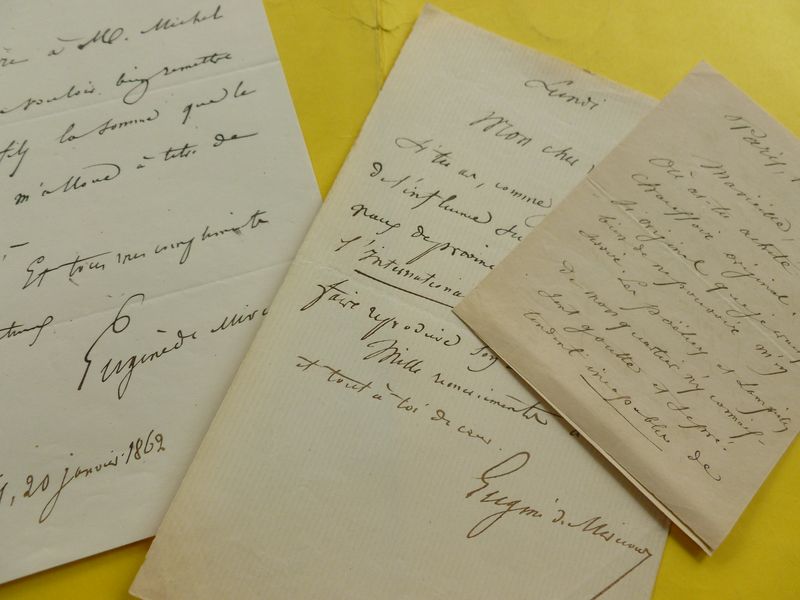 à M. Michel
vouloir bien remettre
la somme que le
m'alloue à titre de
Et tous mes compliments
Eugène de Mirc
20 janvier 1862
Lundi
Mon cher
si tu as, comme
de l'influence su
naux de provin
l'Internationa
faire reproduire
Mille remerciements
et tout à toi de cœur.
Eugène de Mirecourt
Paris, 1
Où as-tu acheté
chauffoir original
si original que je suis
bien de ne pouvoir m'en
servir. Les poëliers et lampistes
de mon quartier n'y connais-
sent goutte et se pré-
tendent incapables de